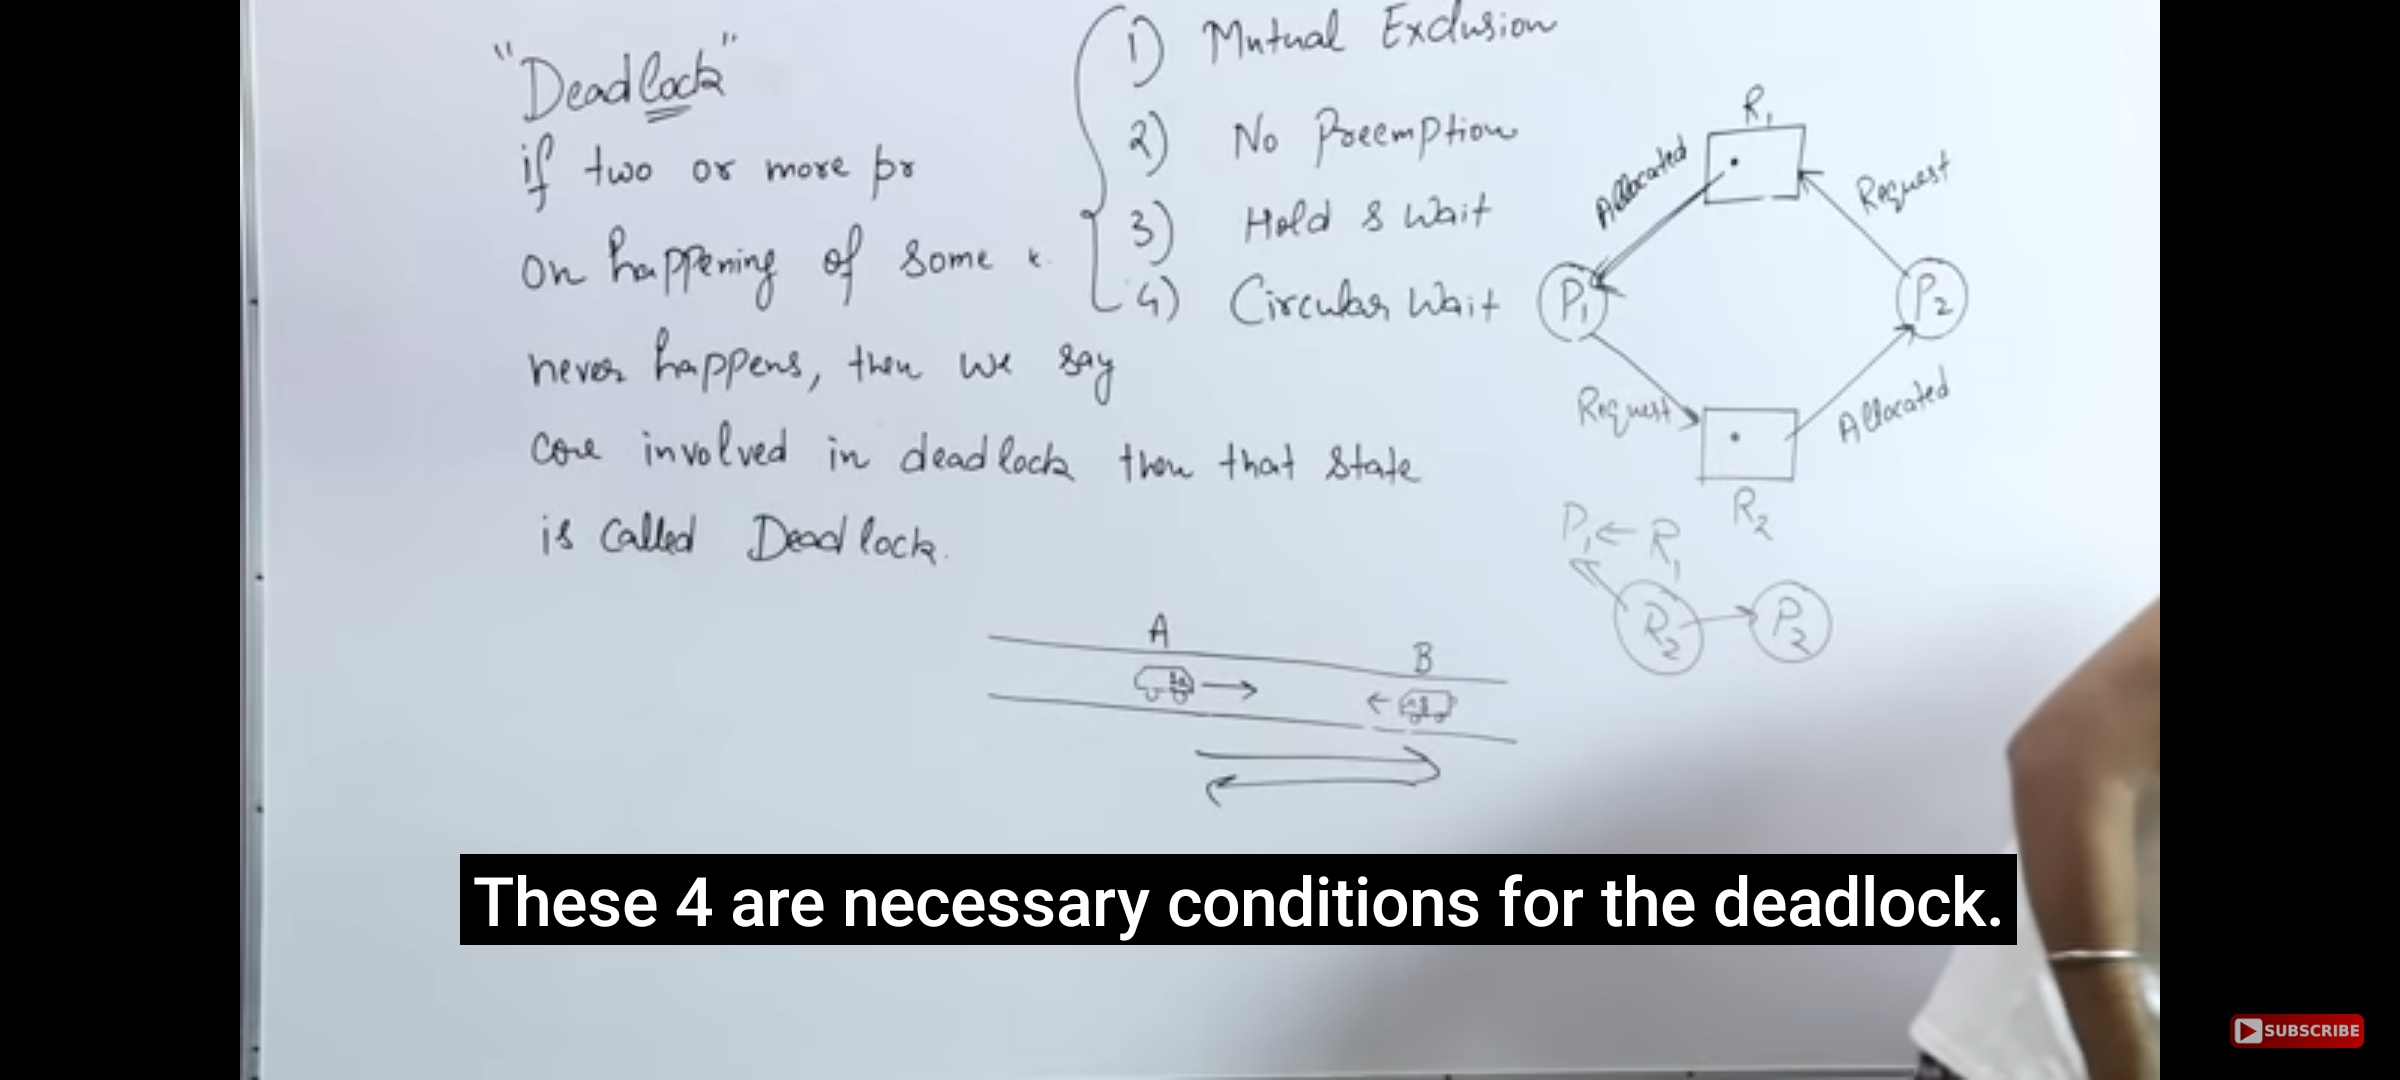 "Deadlock"
if two or more pr
on happening of some
never happens, then we say
are involved in deadlock then that state
is called Deadlock.
1) Mutual Exclusion
2) No Preemption
3) Hold & Wait
4) Circular Wait
R1
Allocated
Request
P1
P2
Request
Allocated
R2
P1 ← R1
R2 → P2
A
B
These 4 are necessary conditions for the deadlock.
SUBSCRIBE